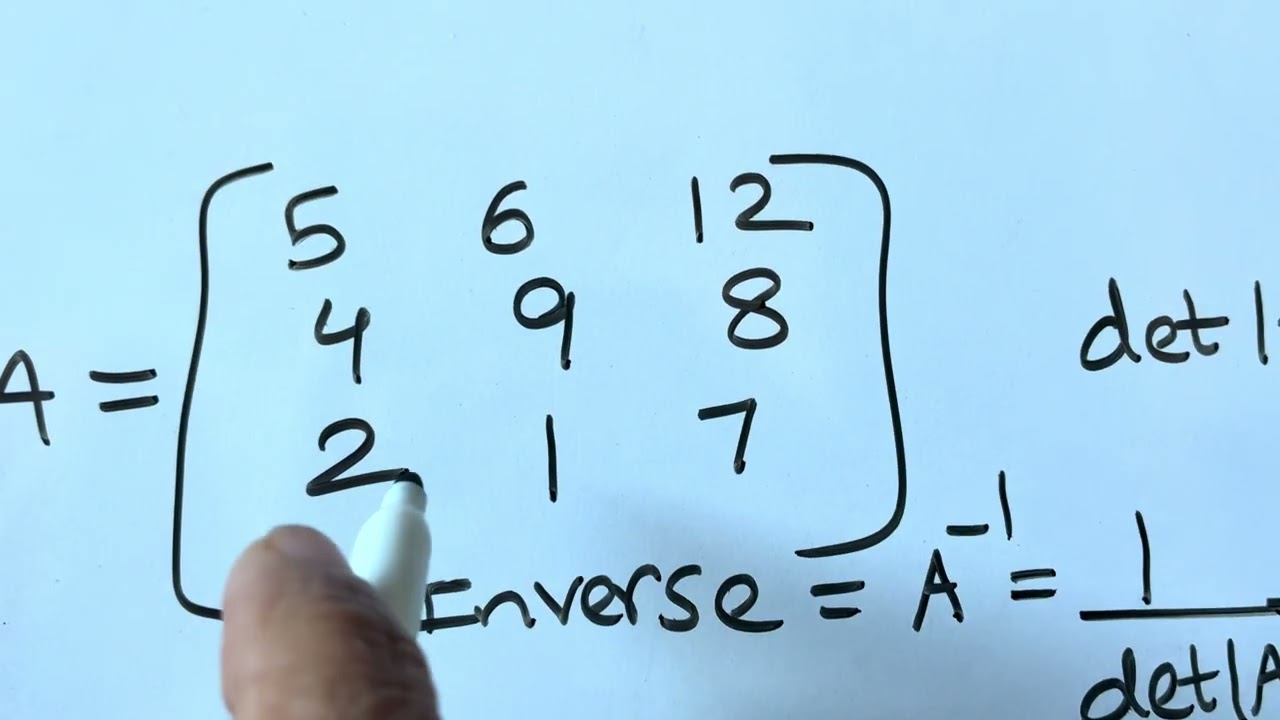 5 6 12
4 9 8
A =
2 1 7
det |
Inverse = A⁻¹ = 1
det|A